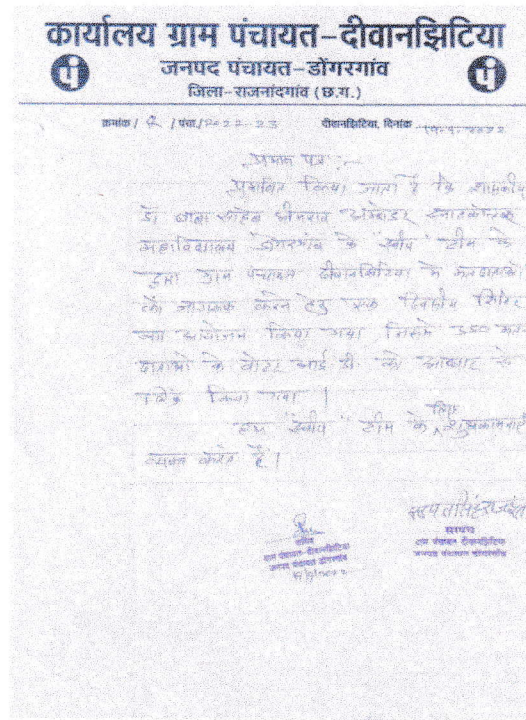 कार्यालय ग्राम पंचायत-दीवानझिटिया
जनपद पंचायत-डोंगरगांव
जिला-राजनांदगांव (छ.ग.)
क्रमांक/ Q /पंचा./2022-23 दीवानझिटिया, दिनांक
प्रमाण पत्र :-
प्रमाणित किया जाता है कि शासकीय
डॉ. बाबा साहेब भीमराव अम्बेडकर स्नातकोत्तर
महाविद्यालय डोंगरगांव के "स्वीप" टीम के
द्वारा ग्राम पंचायत दीवानझिटिया के मतदाताओं
को जागरूक करने हेतु एक दिवसीय शिविर
का आयोजन किया गया जिसमें 350 मत
दाताओं के वोटर आई डी. को आधार से
लिंक किया गया |
हम "स्वीप" टीम के लिए शुभकामनाएं
व्यक्त करते हैं |
सचिव
ग्राम पंचायत-दीवानझिटिया
जनपद पंचायत डोंगरगांव
सरपंच
ग्राम पंचायत दीवानझिटिया
जनपद पंचायत डोंगरगांव